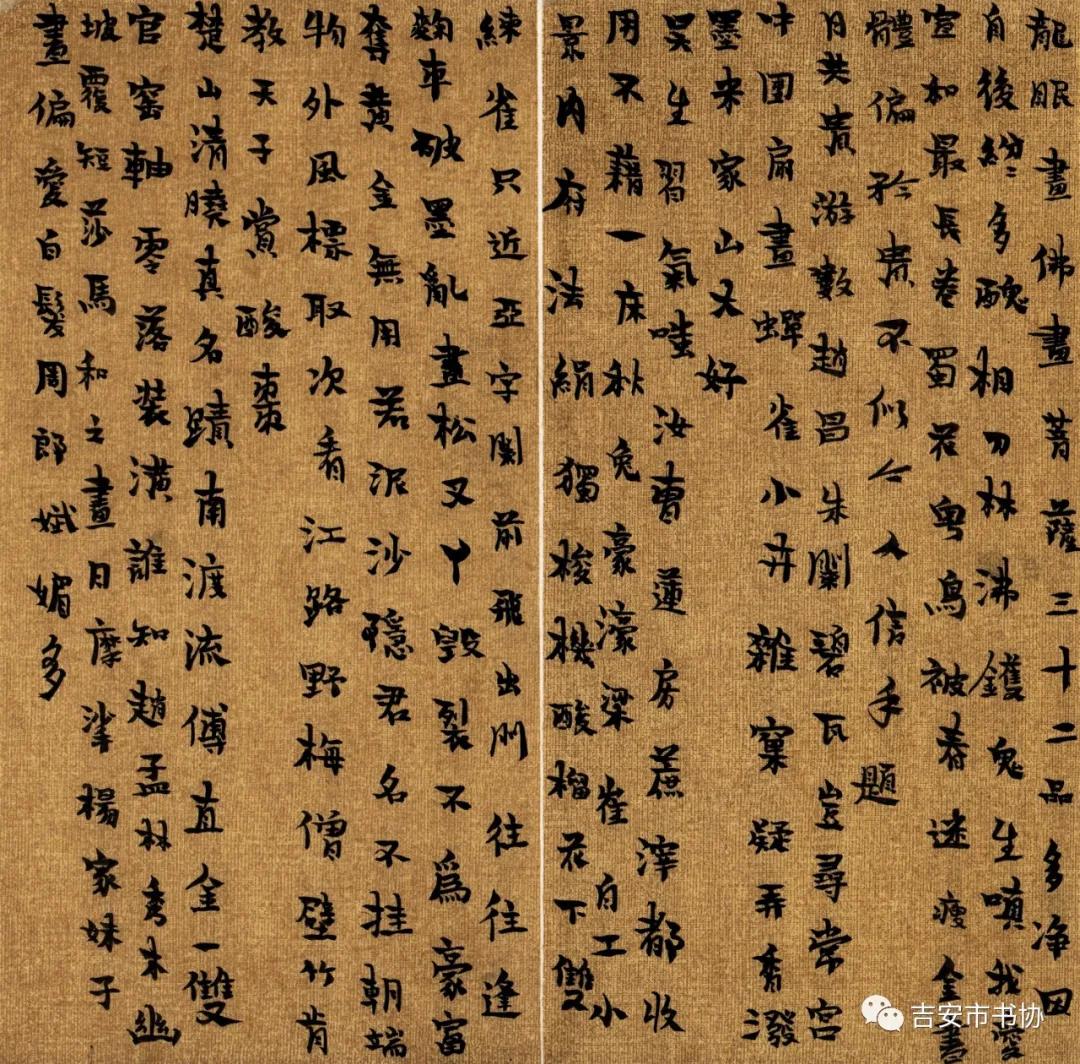 龍眠畫佛畫菩薩三十二品多淨因
自後紛紛多醜相刀林沸鑊鬼生嗔我愛
宣和最長卷蜀花粵鳥被春迷瘦金書
體偏矜貴不似今人信手題
日共貴游數趙昌朱闌碧瓦豈尋常宮
中團扇畫蟬雀小卉雜窠疑弄香潑
墨來家山又好
吳生習氣哇汝曹蓮房蔗滓都收
用不藉一床秋兔豪濠梁崔白工小
景內府法絹獨梭機酸榴花下雙
練雀只近亞字闌前飛出門往往逢
麴車破墨亂畫松叉丫毀裂不爲豪富
奪黃金無用若泥沙隱君名不挂朝端
物外風標取次看江路野梅僧壁竹肯
教天子賞酸棗
楚山清曉真名蹟南渡流傳直金一雙
官窰軸零落裝潢誰知趙孟林秀木幽
坡覆短莎馬和之畫日摩挲楊家妹子
畫偏愛白髮周郎娬媚多
吉安市书协